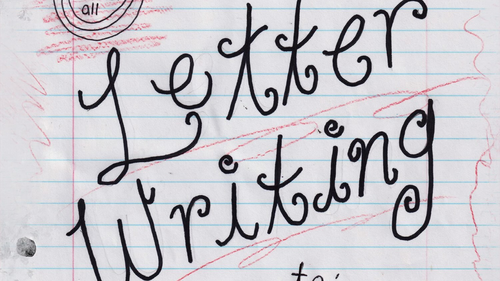 all
Letter
Writing